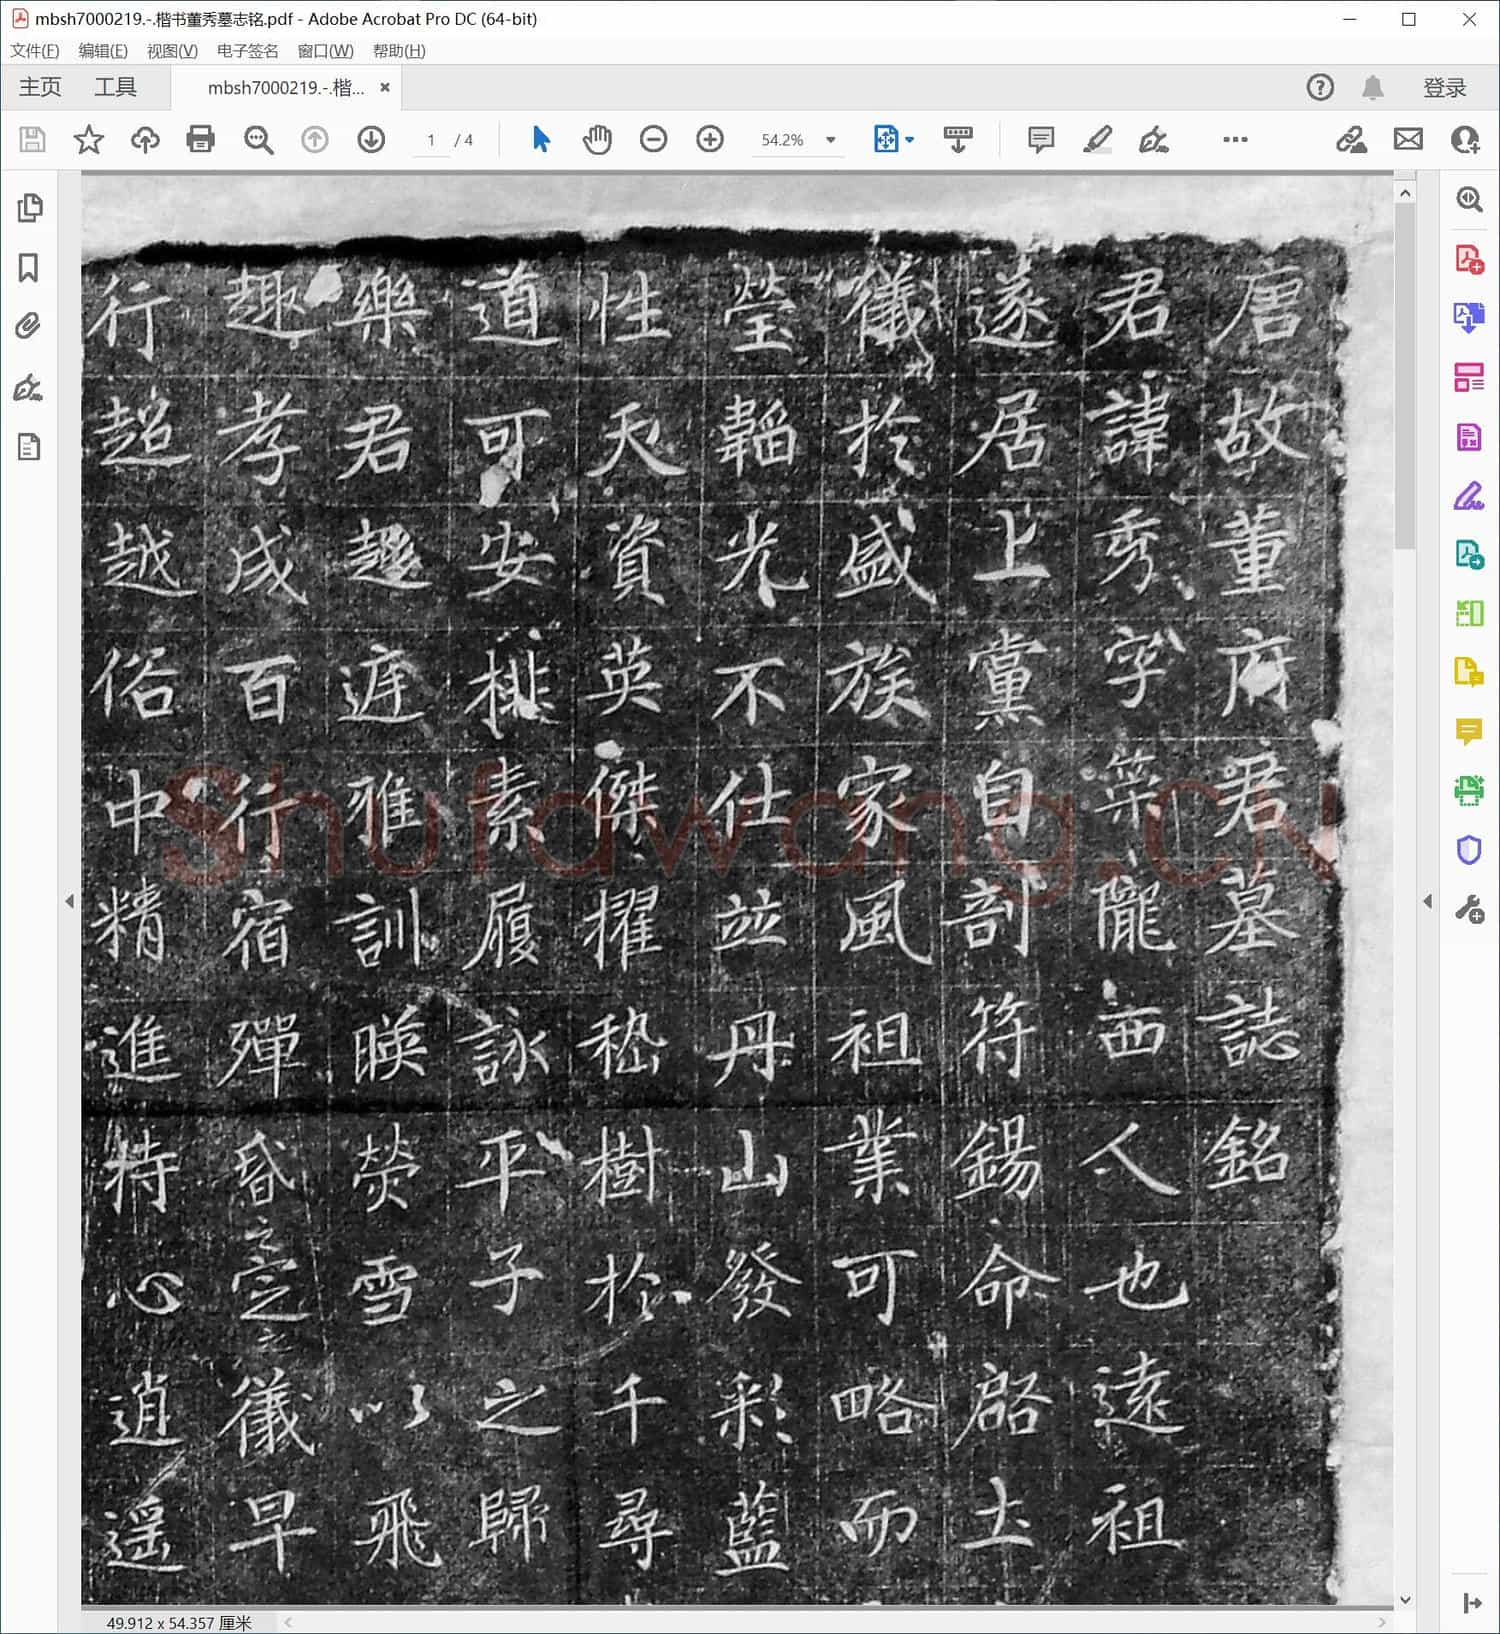 mbsh7000219.-.楷书董秀墓志铭.pdf - Adobe Acrobat Pro DC (64-bit)
文件(F) 编辑(E) 视图(V) 电子签名 窗口(W) 帮助(H)
主页 工具 mbsh7000219.-.楷... 登录
1 / 4 54.2%
唐故董府君墓誌銘
君諱秀字隴西人也遠祖
遂居上黨自剖符錫命啓土
儀於盛族家風祖業可略而
瑩韜光不仕並丹山發彩藍
性天資英傑擢嵇樹於千尋
道可安桃素履詠平子之歸
樂君趨庭雅訓暎熒雪以飛
趣孝成百行宿殫昏定儀早
行超越俗中精進特心逍遥
Shufawang.CN
49.912 x 54.357 厘米